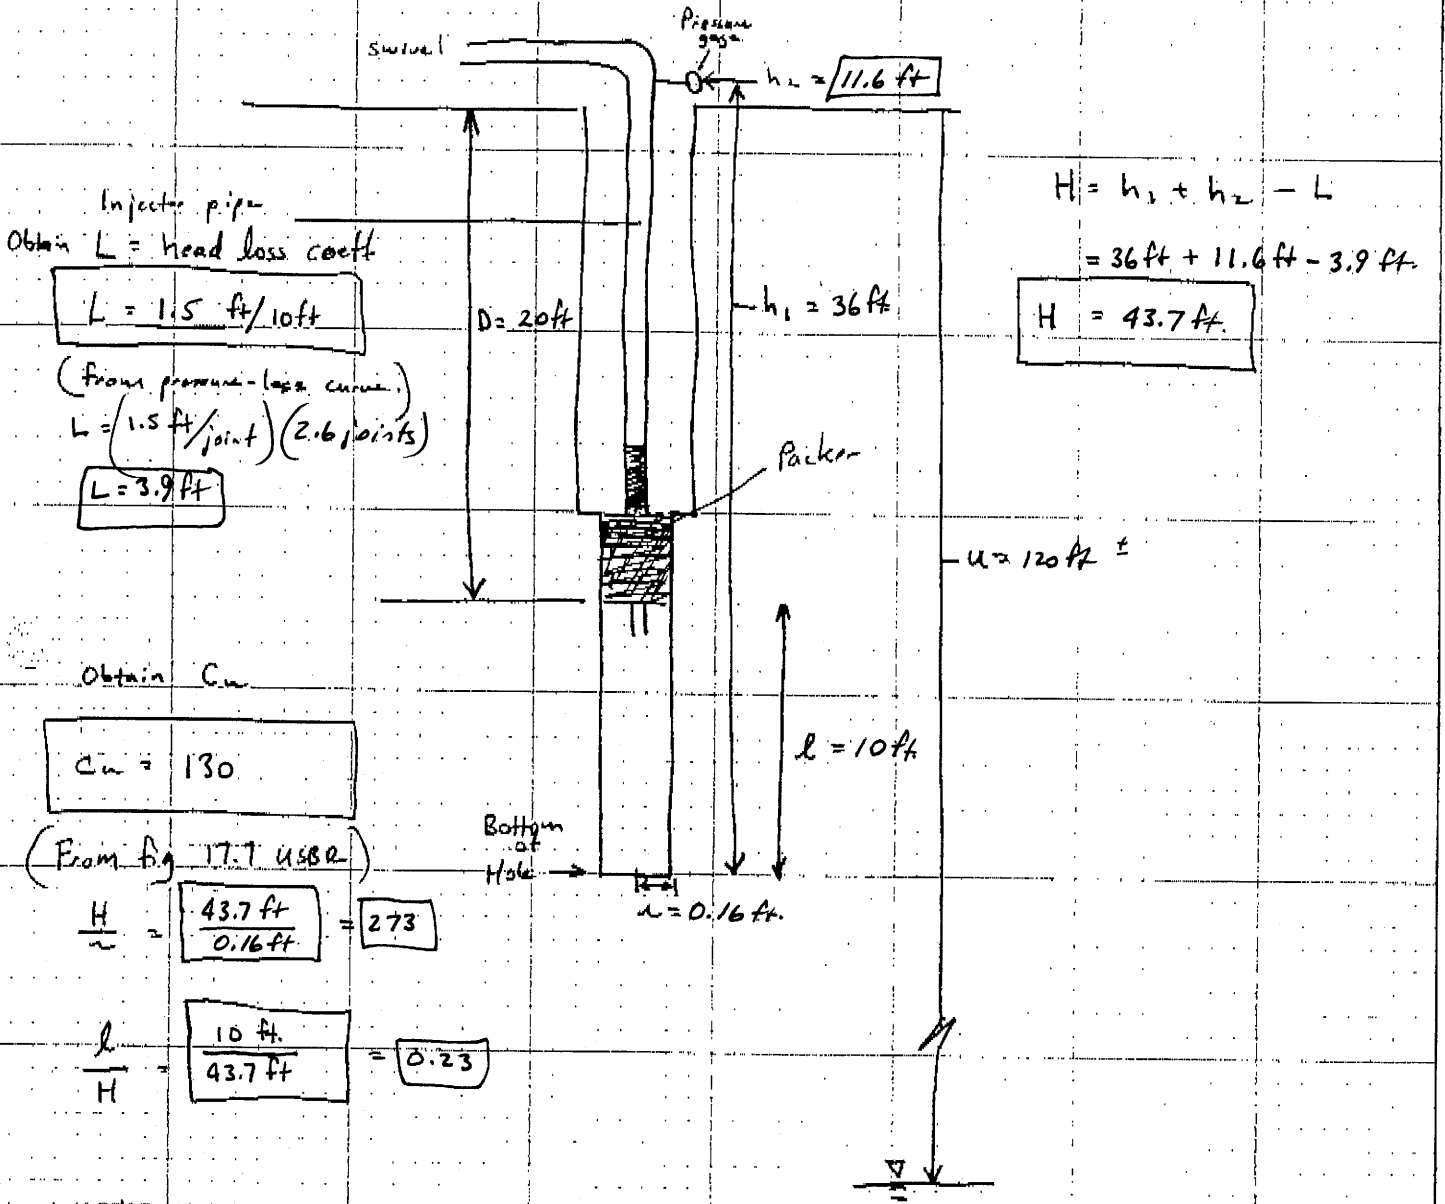 Pressure
gage
swivel
h₂ = 11.6 ft
Injector pipe
Obtain L = head loss coeff
L = 1.5 ft/10ft
(from pressure-loss curve.)
L = (1.5 ft/joint)(2.6 joints)
L = 3.9 ft
D = 20ft
h₁ = 36ft
H = h₁ + h₂ - L
= 36ft + 11.6ft - 3.9 ft.
H = 43.7 ft.
Packer
u ≈ 120 ft ±
Obtain Cu
Cu = 130
(From fig 17.7 USBR)
l = 10ft
Bottom
of
Hole
r = 0.16 ft.
H/r = 43.7 ft/0.16 ft = 273
l/H = 10 ft./43.7 ft = 0.23